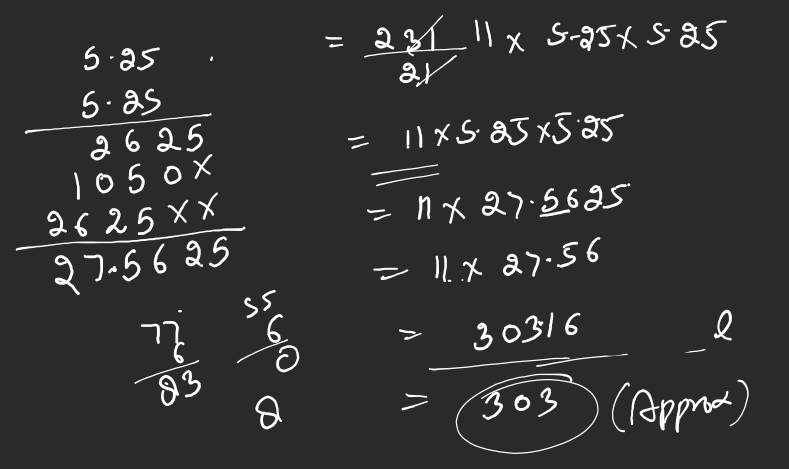 5.25
5.25
2625
1050×
2625××
27.5625
77
6
83
55
6
0
2
= 231/21 11 × 5.25 × 5.25
= 11 × 5.25 × 5.25
= 11 × 27.5625
= 11 × 27.56
= 303.16
= 303 (Approx)